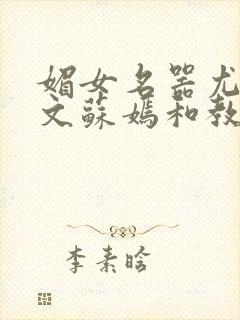 媚女名器尤
文蘇媽和教
李素晗